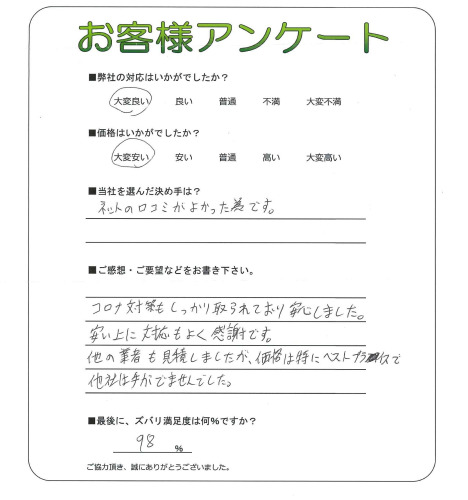 お客様アンケート
■弊社の対応はいかがでしたか？
大変良い 良い 普通 不満 大変不満
■価格はいかがでしたか？
大変安い 安い 普通 高い 大変高い
■当社を選んだ決め手は？
ネットの口コミがよかった為です。
■ご感想・ご要望などをお書き下さい。
コロナ対策もしっかり取られており安心しました。
安い上に対応もよく感謝です。
他の業者も見積しましたが、価格は特にベストプライスで
他社は手がでませんでした。
■最後に、ズバリ満足度は何%ですか？
98 %
ご協力頂き、誠にありがとうございました。